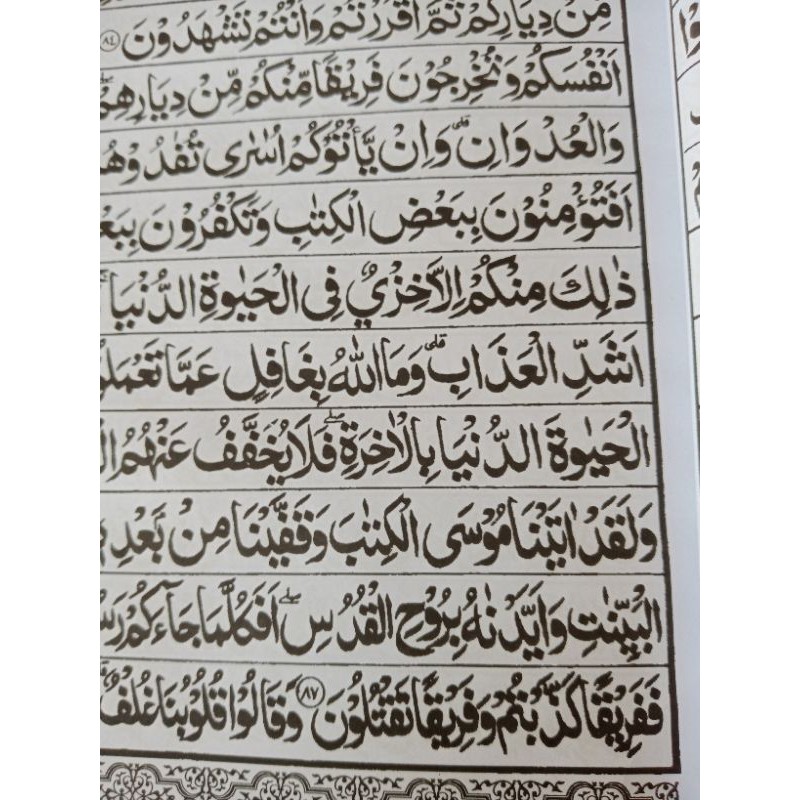 مِنْ دِيَارِكُمْ ثُمَّ اَقْرَرْتُمْ وَاَنْتُمْ تَشْهَدُوْنَ ﴿۸۴﴾
اَنْفُسَكُمْ وَتُخْرِجُوْنَ فَرِيْقًا مِّنْكُمْ مِّنْ دِيَارِهِمْ
وَالْعُدْوَانِ ؕ وَاِنْ يَّاْتُوْكُمْ اُسٰرٰى تُفٰدُوْهُ
اَفَتُؤْمِنُوْنَ بِبَعْضِ الْكِتٰبِ وَتَكْفُرُوْنَ بِبَعْ
ذٰلِكَ مِنْكُمْ اِلَّا خِزْيٌ فِى الْحَيٰوةِ الدُّنْيَا
اَشَدِّ الْعَذَابِ ؕ وَمَا اللّٰهُ بِغَافِلٍ عَمَّا تَعْمَلُ
الْحَيٰوةَ الدُّنْيَا بِالْاٰخِرَةِ ۖ فَلَا يُخَفَّفُ عَنْهُمُ الْ
وَلَقَدْ اٰتَيْنَا مُوْسَى الْكِتٰبَ وَقَفَّيْنَا مِنْ بَعْدِ
الْبَيِّنٰتِ وَاَيَّدْنٰهُ بِرُوْحِ الْقُدُسِ ۖ اَفَكُلَّمَا جَآءَكُمْ رَسُ
فَفَرِيْقًا كَذَّبْتُمْ وَفَرِيْقًا تَقْتُلُوْنَ ﴿۸۷﴾ وَقَالُوْا قُلُوْبُنَا غُلْفٌ